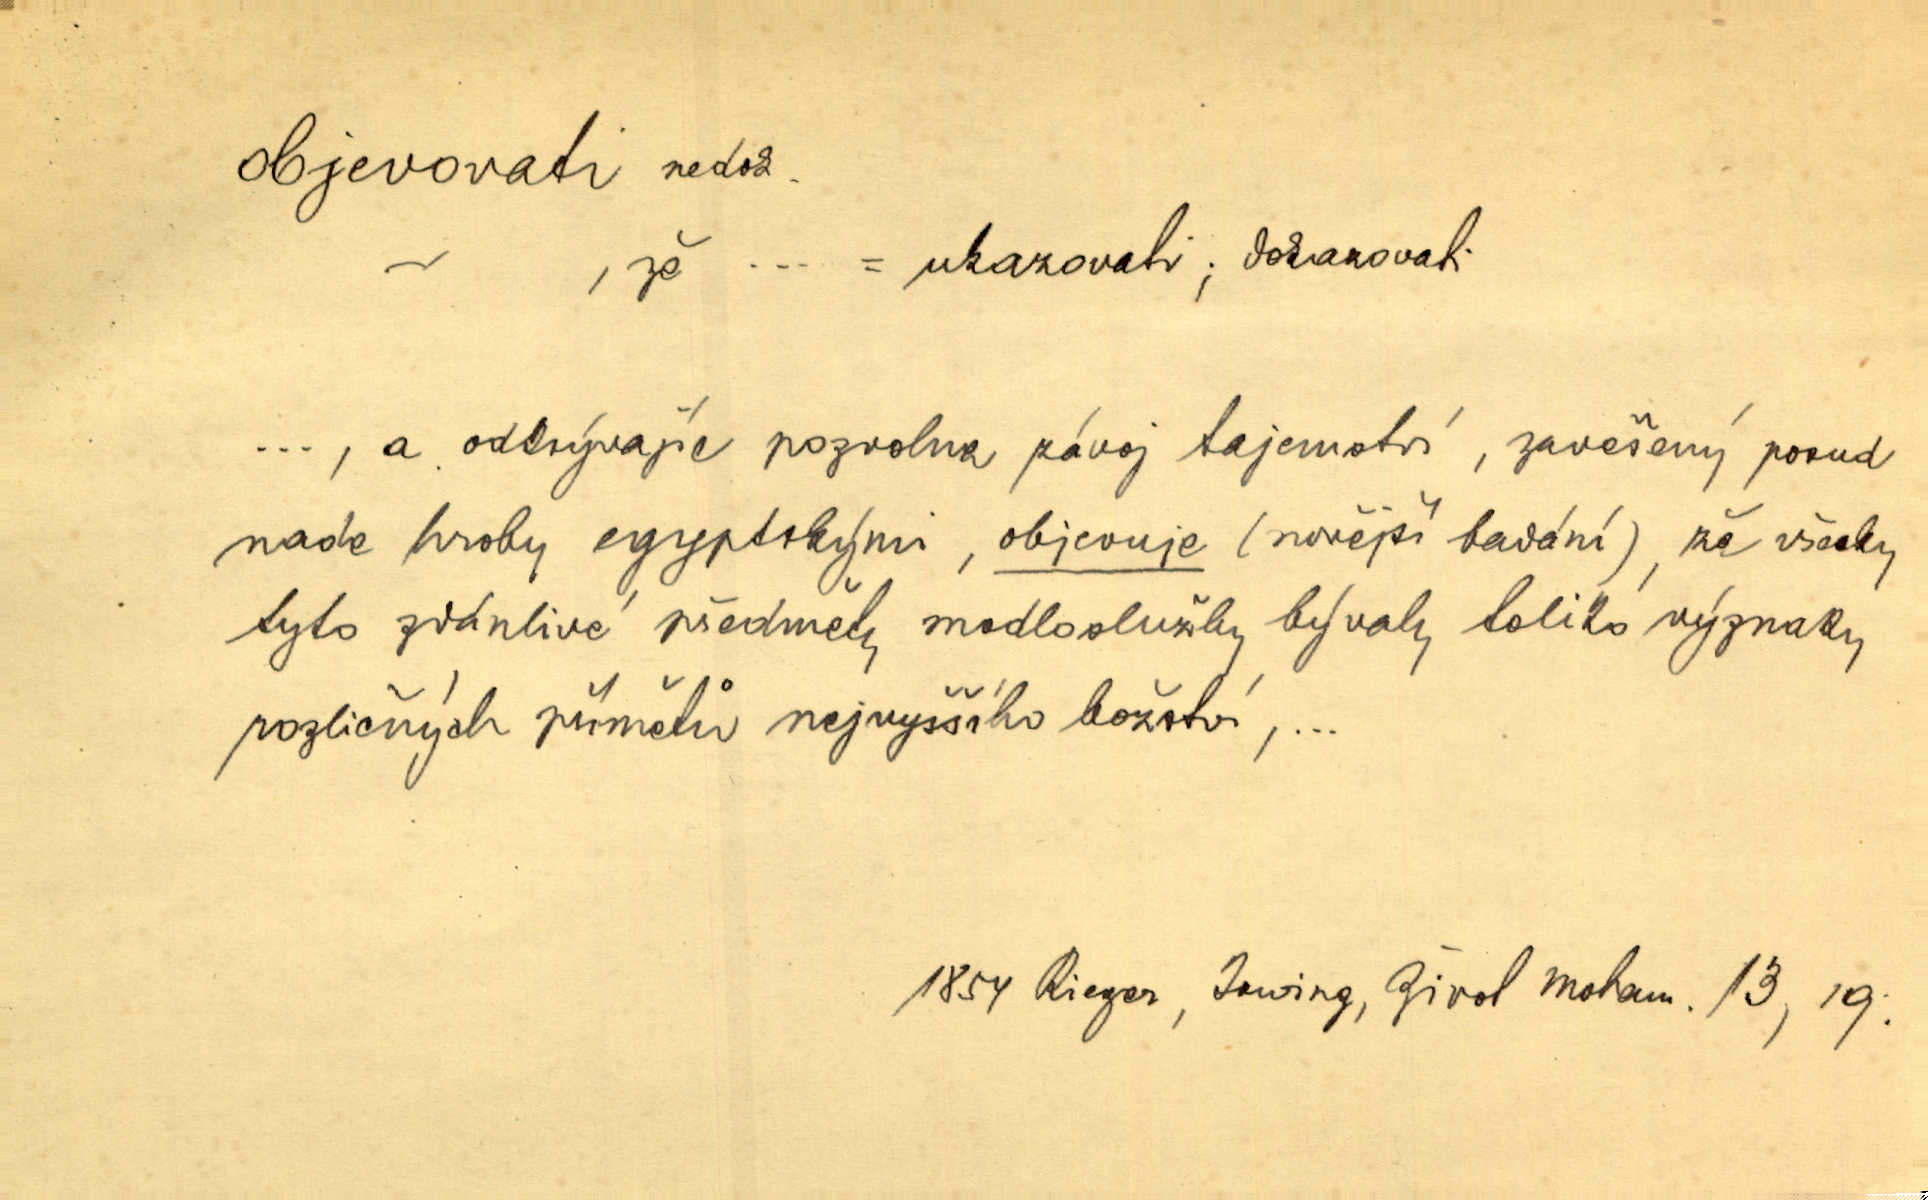 objevovati nedok.
~ , že --- = ukazovati ; dokazovati
---, a odkrývajíc pozvolna závoj tajemství, zavěšený posud
nade hroby egyptskými, objevuje (novější badání), že všecky
tyto zdánlivé předměty modloslužby bývaly toliko význaky
rozličných přímětů nejvyššího božství, ...
1854 Rieger, Irwing, Život Moham. 13, 19.